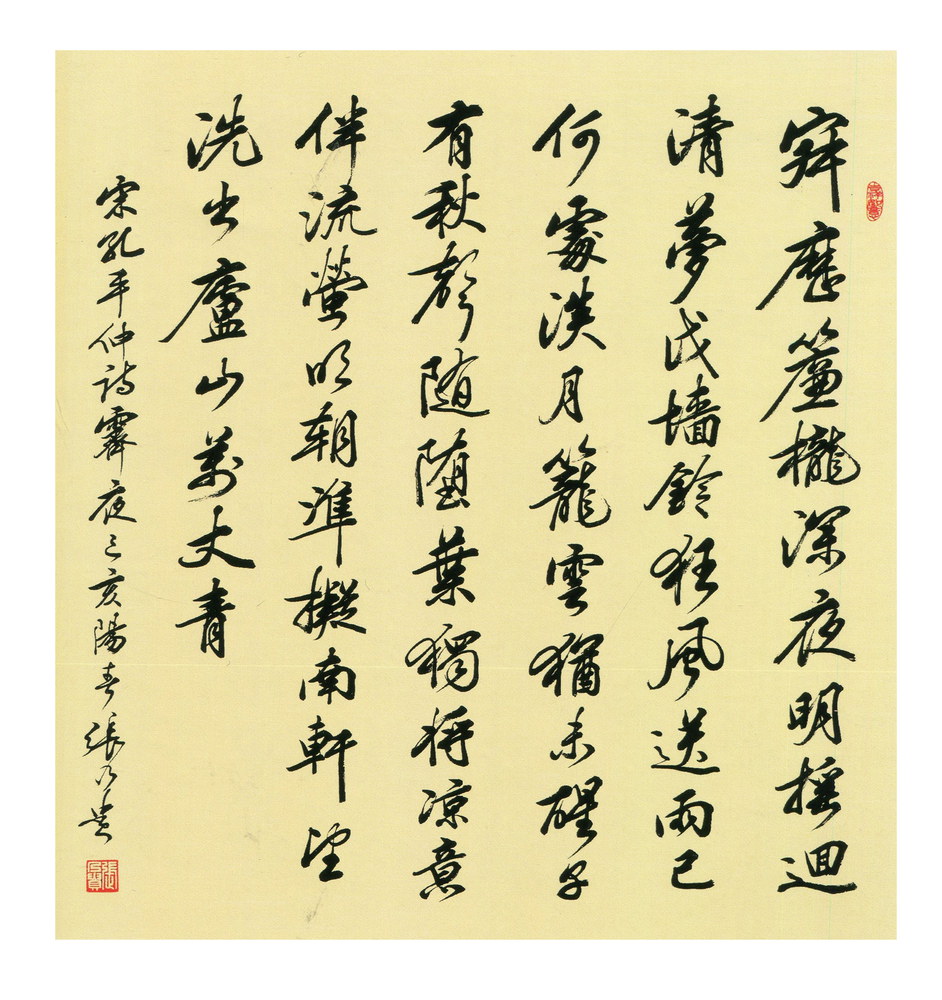 寂歷簾櫳深夜明摇迴
清夢戍墙鈴狂風送雨已
何處淡月籠雲猶未醒早
有秋聲随堕葉獨将凉意
伴流螢明朝準擬南軒望
洗出廬山萬丈青
宋孔平仲詩霽夜己亥陽春張乃貴